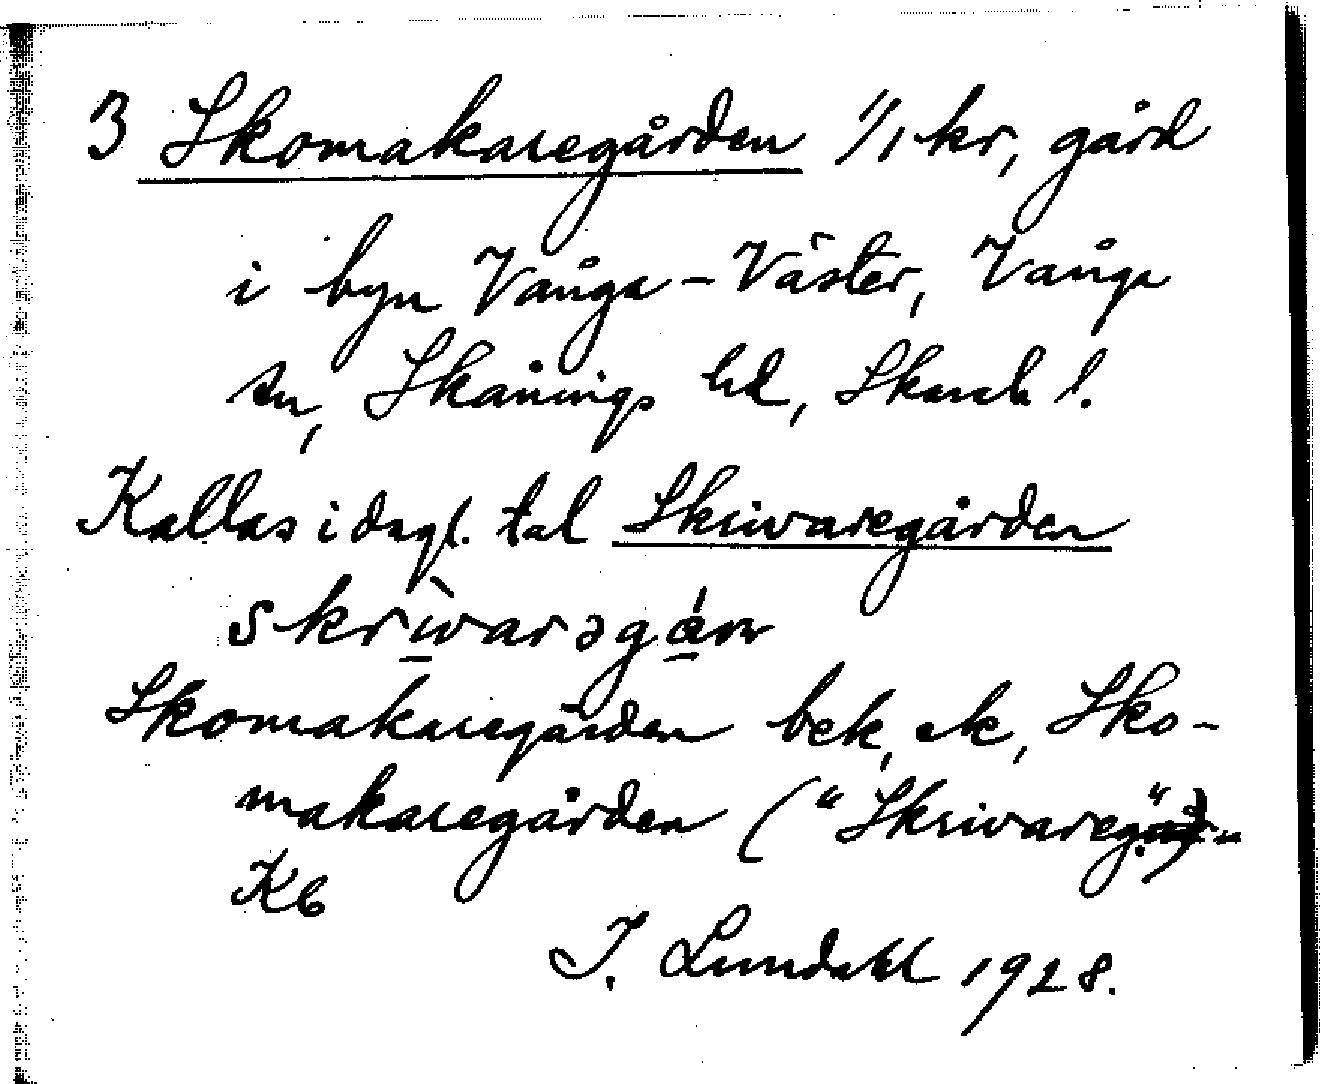 3 Skomakaregården 1/1 kr, gård
i byn Vånga-Väster, Vånga
sn, Skånings hd, Skarab. l.
Kallas i dagl. tal Skrivaregården
skrìvarəgá̱ɳ
Skomakaregården bek, ek, Sko-
makaregården ("Skrivareg.")
K6
I. Lundahl 1928.